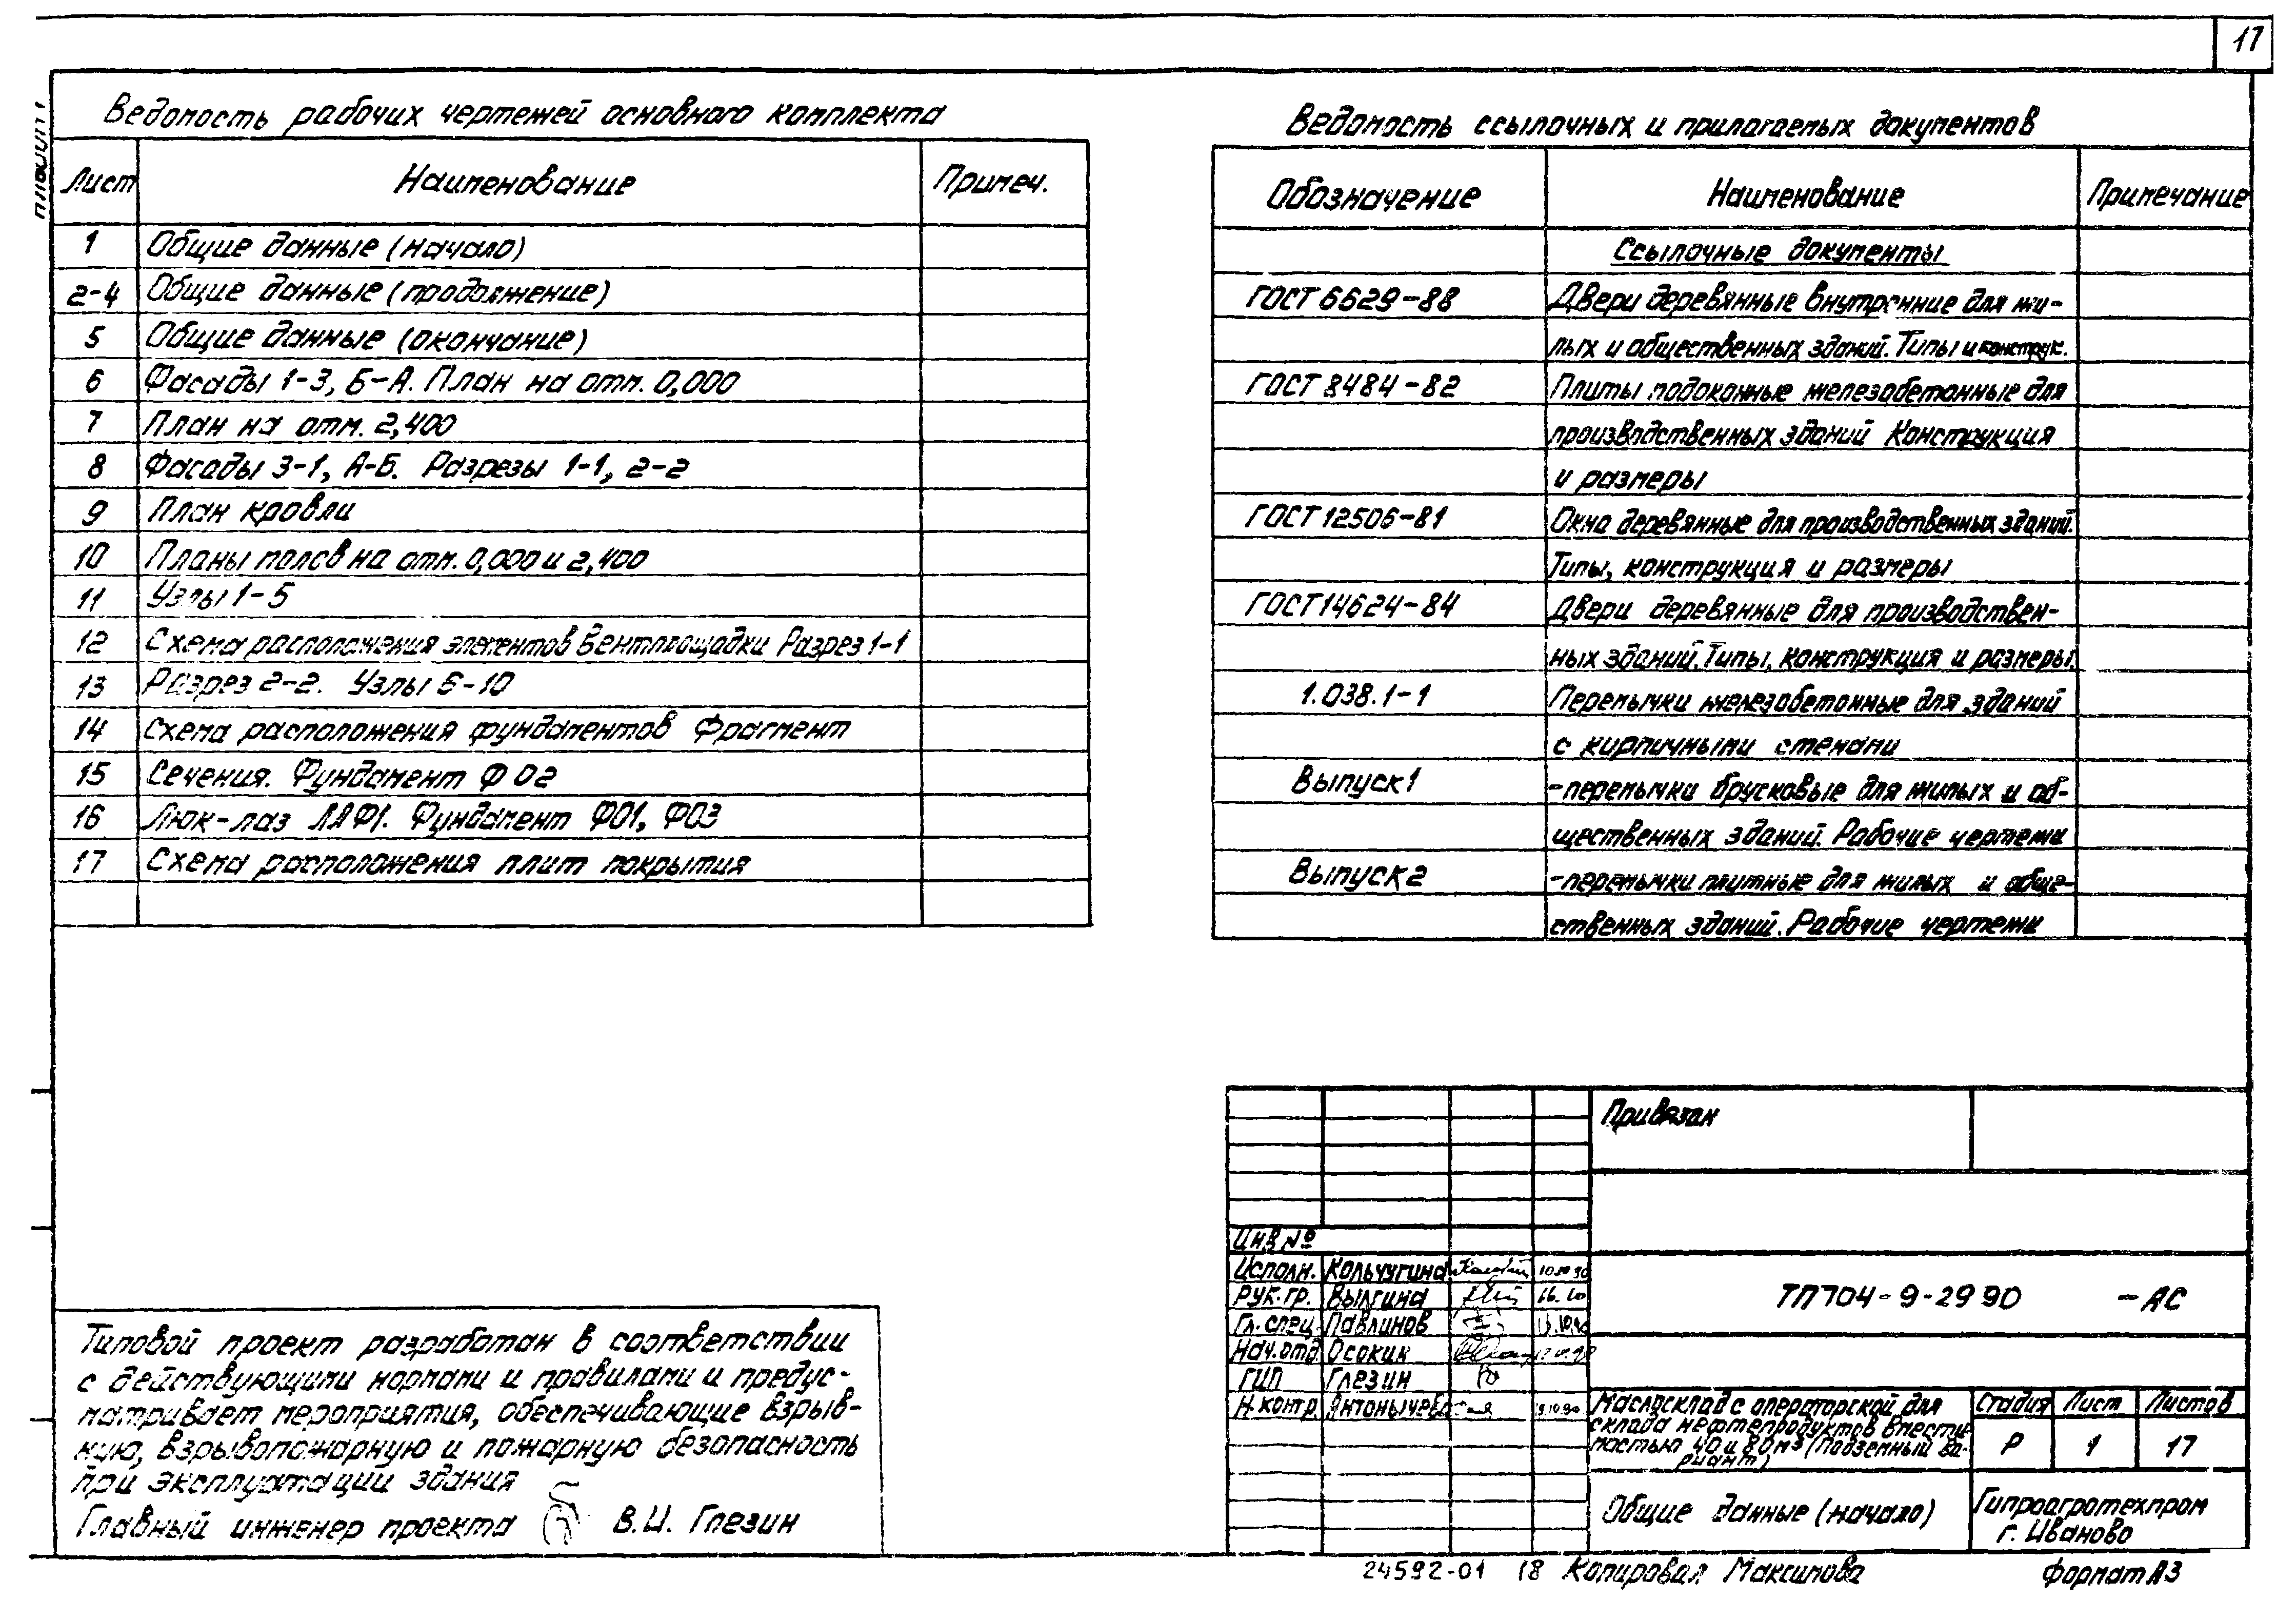 17
Альбом 1
Ведомость рабочих чертежей основного комплекта
Лист Наименование Примеч.
1 Общие данные (начало)
2-4 Общие данные (продолжение)
5 Общие данные (окончание)
6 Фасады 1-3, Б-А. План на отм. 0,000
7 План на отм. 2,400
8 Фасады 3-1, А-Б. Разрезы 1-1, 2-2
9 План кровли
10 Планы полов на отм. 0,000 и 2,400
11 Узлы 1-5
12 Схема расположения элементов Вентплощадки Разрез 1-1
13 Разрез 2-2. Узлы 6-10
14 Схема расположения фундаментов Фрагмент
15 Сечения. Фундамент Ф02
16 Люк-лаз ЛЛФ1. Фундамент Ф01, Ф03
17 Схема расположения плит покрытия
Ведомость ссылочных и прилагаемых документов
Обозначение Наименование Примечание
Ссылочные документы
ГОСТ 6629-88 Двери деревянные внутренние для жи-
лых и общественных зданий. Типы и конструк.
ГОСТ 8484-82 Плиты подоконные железобетонные для
производственных зданий Конструкция
и размеры
ГОСТ 12506-81 Окна деревянные для производственных зданий.
Типы, конструкция и размеры
ГОСТ 14624-84 Двери деревянные для производствен-
ных зданий. Типы, конструкция и размеры.
1.038.1-1 Перемычки железобетонные для зданий
с кирпичными стенами
Выпуск 1 -перемычки брусковые для жилых и об-
щественных зданий. Рабочие чертежи
Выпуск 2 -перемычки плитные для жилых и обще-
ственных зданий. Рабочие чертежи
Типовой проект разработан в соответствии
с действующими нормами и правилами и предус-
матривает мероприятия, обеспечивающие взрыв-
ную, взрывопожарную и пожарную безопасность
при эксплуатации здания
Главный инженер проекта В.И. Глезин
Привязан
Инв №
Исполн. Кольчугина
Рук.гр. Вылгина
Гл. спец. Павлинов
Нач.отд. Осокин
ГИП Глезин
Н.контр. Антонычева
ТП 704-9-29 90 -АС
Маслосклад с операторской для
склада нефтепродуктов вмести-
мостью 40 и 80 м³ (подземный ва-
риант)
Стадия Лист Листов
Р 1 17
Общие данные (начало)
Гипроагротехпром
г. Иваново
24592-01 18 Копировал Максимова Формат А3